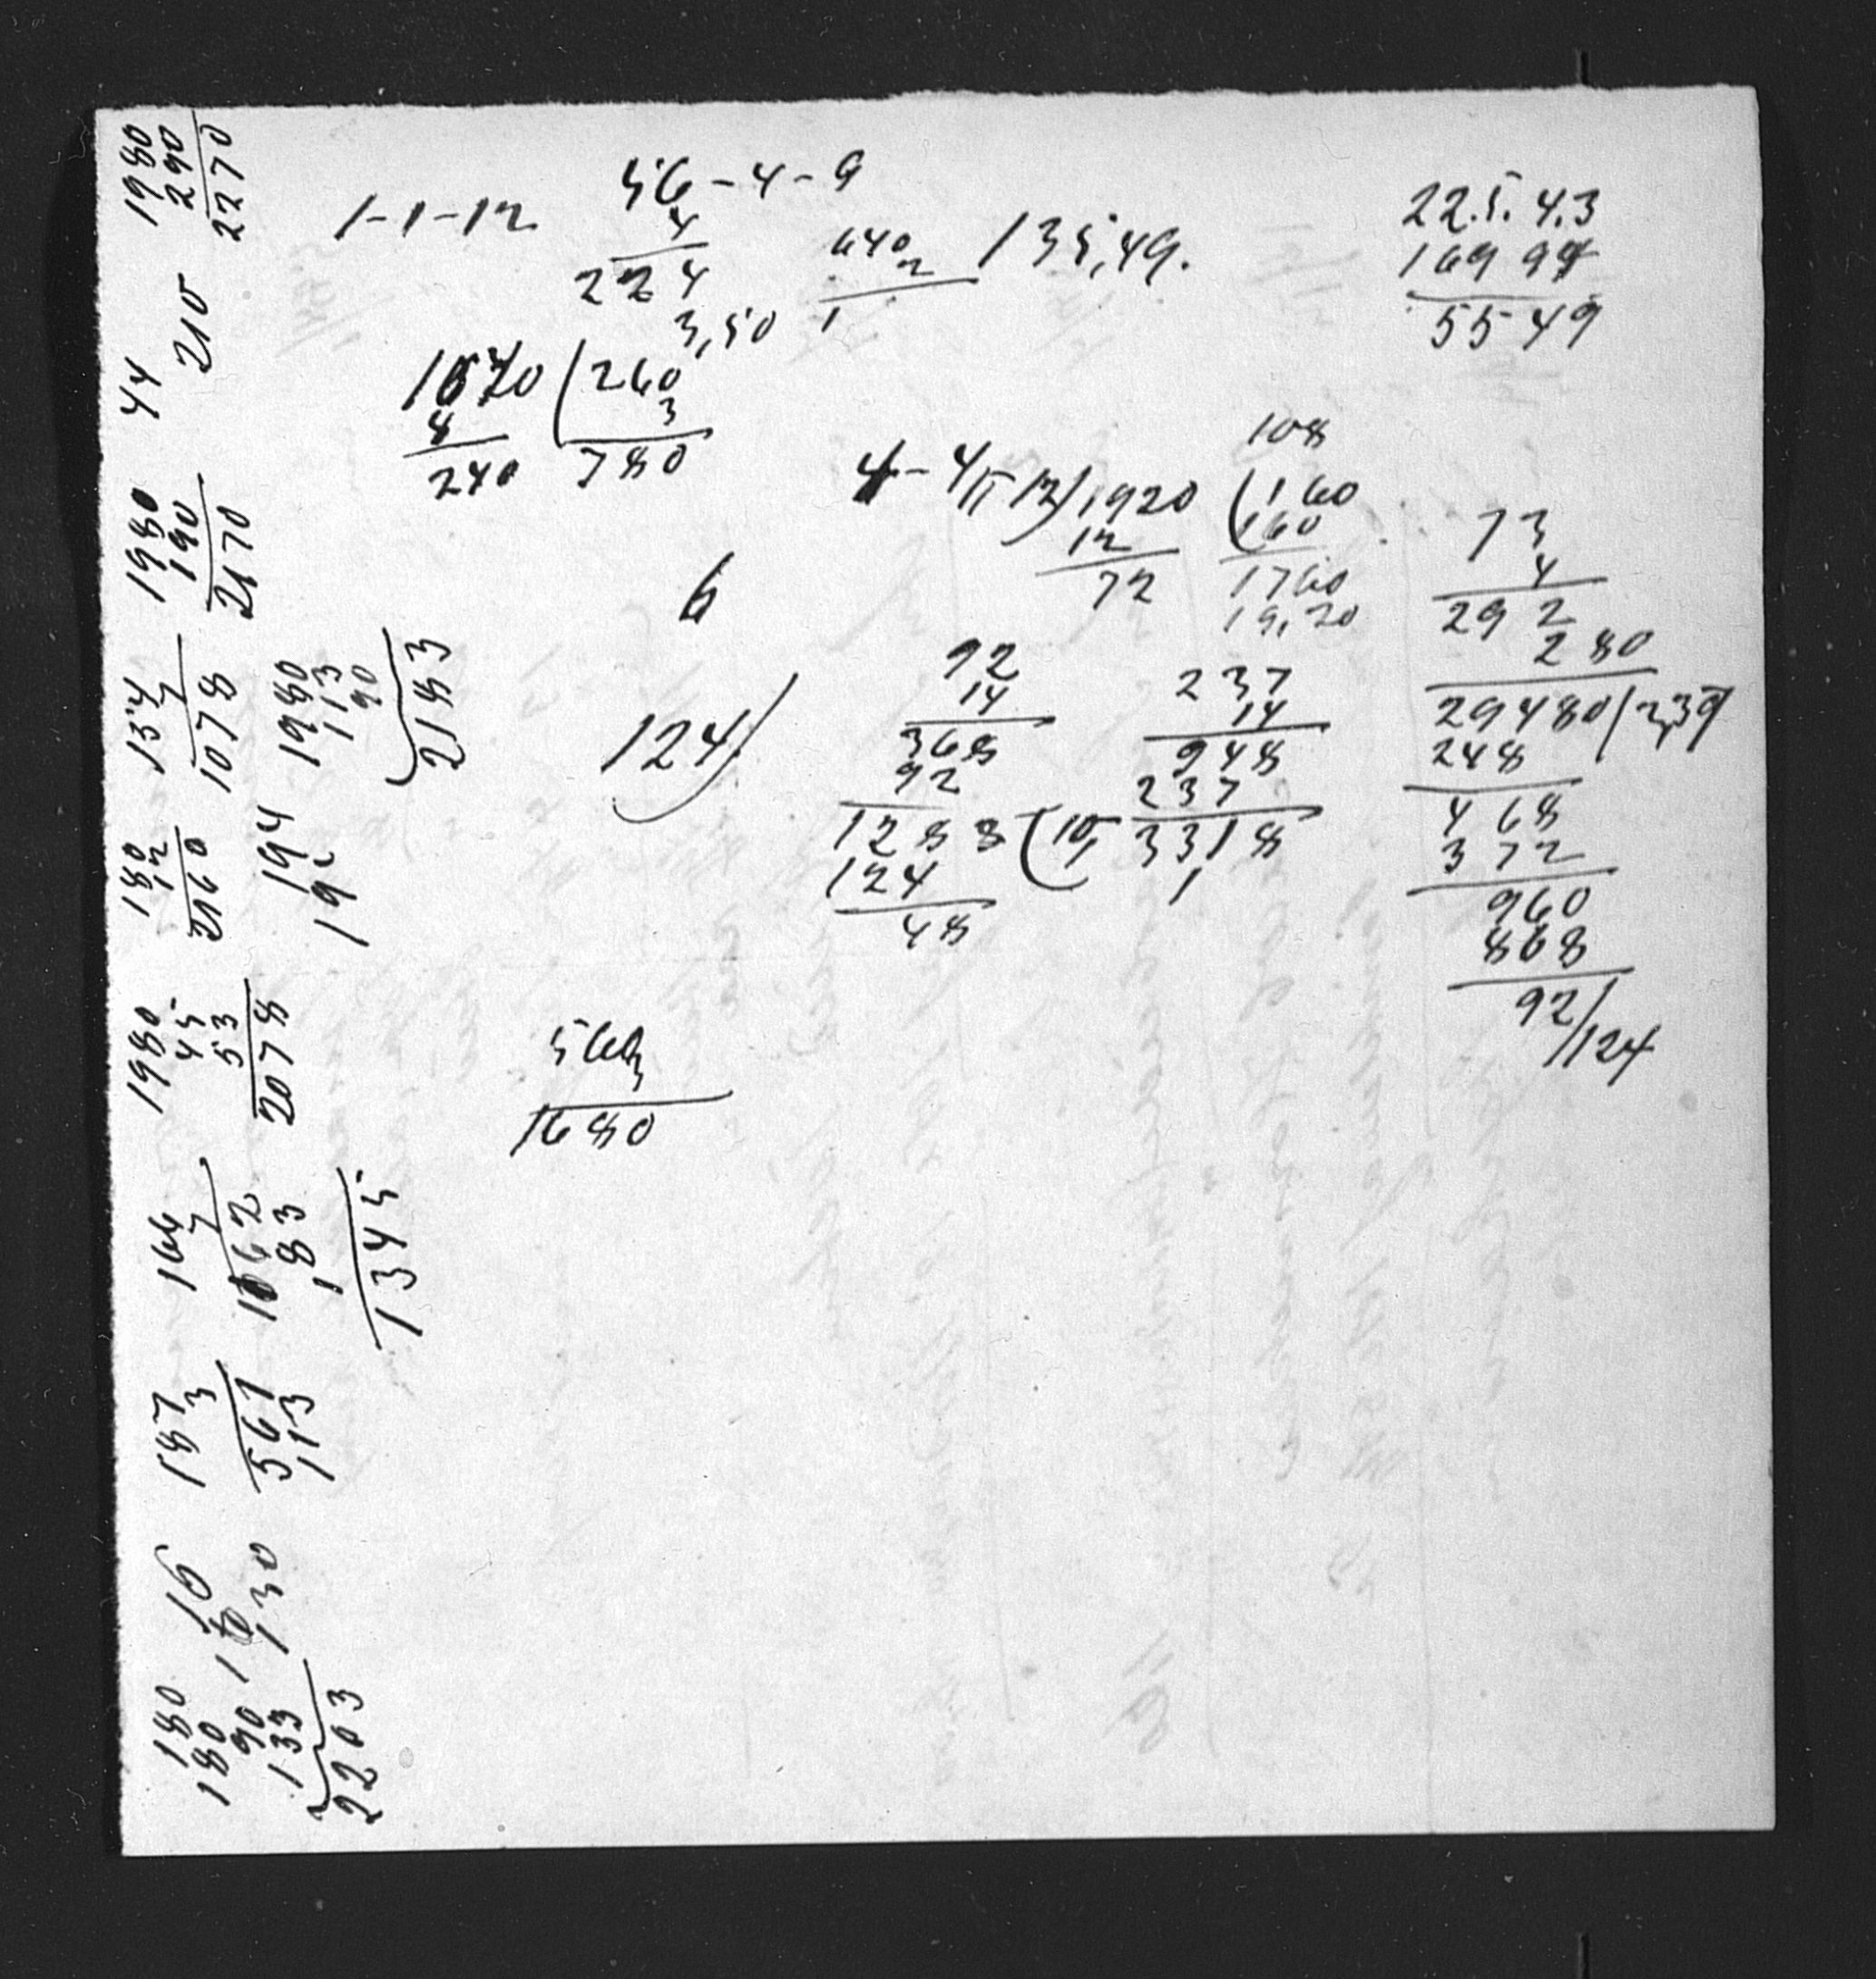 1-1-12
56-4-9
4
224
3,50
640
2
1
135,49.
22.5.4.3
169 99
5549
260
3
780
8
240
108
1920
12
72
160
160
1760
19,20
73
4
292
280
29480/2,39
248
468
372
960
868
92/124
6
124/
92
14
368
92
1288
124
48
(10,
237
14
948
237
3318
1
560
3
1680
1980
290
2270
210
44
1980
190
2170
154
7
1078
1980
113
90
2183
180
12
2160
194
19
1980
45
53
2078
166
7
1162
183
1345
187
3
561
113
16
130
180
180
90
133
2203